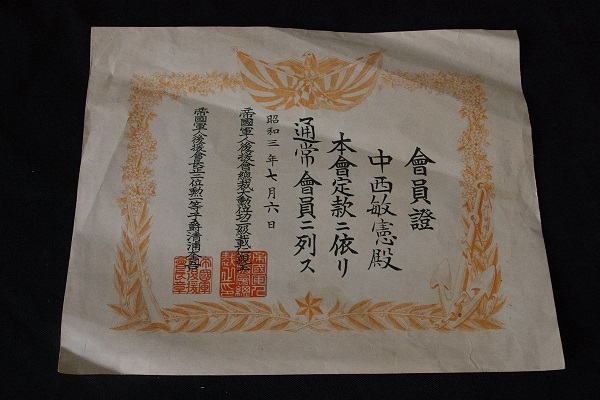 會員證
中西敏憲殿
本會定款ニ依リ
通常會員ニ列ス
昭和三年七月六日
帝國軍人後援會總裁大勲位功二級載仁親王
帝國軍人後援會長正二位勲一等子爵清浦奎吾